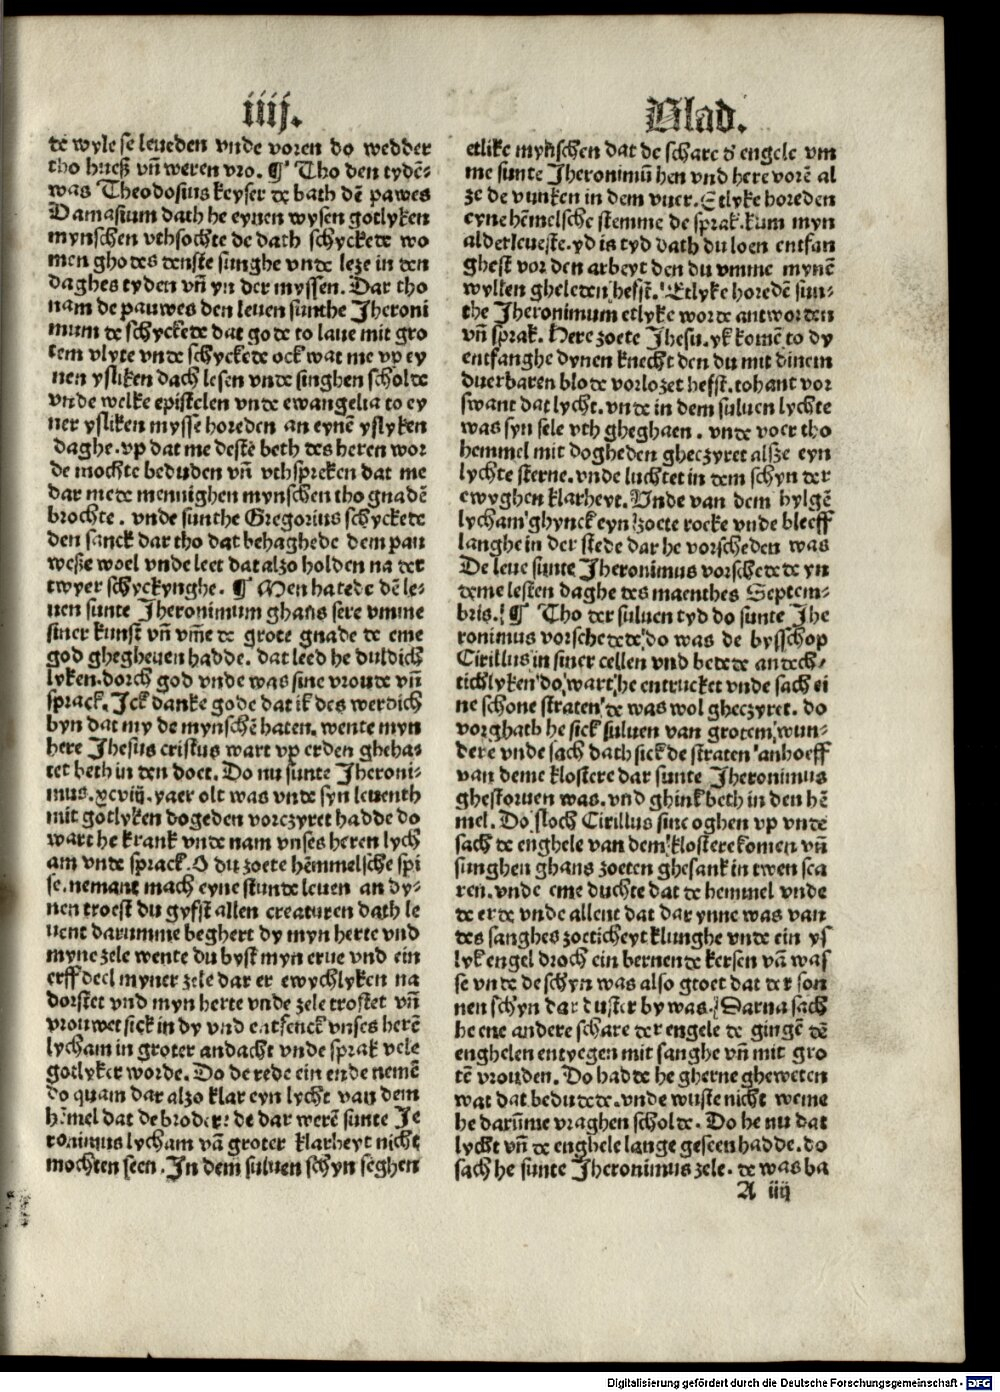 iiij.
Blad.
de wyle se leueden vnde voren do wedder
tho hueß vn̄ weren vro. ¶ Tho den tydē-
was Theodosius keyser de bath dē pawes
Damasium dath he eynen wysen gotlyken
mynschen vthsochte de dath schyckede wo
men ghodes denste sunghe vnde leze in den
daghes tyden vn̄ yn der myssen. Dar tho
nam de pauwes den leuen sunthe Jheroni
mum de schyckede dat gode to laue mit gro
tem vlyte vnde schyckede ock wat me vp ey
nen ysliken dach lesen vnde singhen scholde
vnde welke epistelen vnde ewangelia to ey
ner ysliken myssē horeden an eynē yslyken
daghe. vp dat me destē beth des heren wor
de mochte beduden vn̄ vthspreken dat me
dar mede mennighen mynschen tho gnadē
brochte. vnde sunthe Gregorius schyckede
den sanck dar tho dat behaghede dem pau
weße woel vnde leet dat alzo holden na der
twyer schyckynghe. ¶ Men hatede dē le-
uen sunte Jheronimum ghans sere vmme
siner kunst vn̄ vm̄e de grote gnade de eme
god ghegheuen hadde. dat leed he duldich
lyken. dorch god vnde was sine vroude vn̄
sprack. Ick danke gode dat ik des werdich
byn dat my de mynschē haten. wente myn
here Jhesus cristus wart vp erden gheha-
tet beth in den doet. Do nu sunte Jheroni-
mus. xcviij. yaer olt was vnde syn leuenth
mit gotlyken dogeden vorczyret hadde do
wart he krank vnde nam vnses heren lych
am vnde sprack. O du zoete hēmmelsche spi
se. nemant mach eyne stunde leuen an dy-
nen troest du gyfst allen creaturen dath le
uent darumme beghert dy myn herte vnd
myne zele wente du byst myn erue vnd ein
erff deel myner zele dar er ewychlyken na
dorstet vnd myn herte vnde zele trostet vn̄
vrouwet sick in dy vnd entfenck vnses herē
lycham in groter andacht vnde sprak vele
gotlyker worde. Do de rede ein ende nemē
do quam dar alzo klar eyn lycht van dem
hēmel dat de broder de dar werē sunte Je
ronimus lycham vā groter klarheyt nicht
mochten seen. In dem suluen schyn seghen
etlike mynschen dat de schare d' engele vm
me sunte Jheronimū hen vnd here vorē al
ze de vunken in dem vuer. Etlyke horeden
eyne hēmelsche stemme de sprak. kum myn
alderleueste. yd is tyd dath du loen entfan
ghest vor den arbeyt den du vmme mynē
wyllen gheleden hefst. Etlyke horedē sun-
the Jheronimum etlyke worde antworden
vn̄ sprak. Here zoete Jhesu. yk komē to dy
entfanghe dynen knecht den du mit dinem
duerbaren blode vorlozet hefst. tohant vor
swant dat lycht. vnde in dem suluen lychte
was syn sele vth gheghaen. vnde voer tho
hemmel mit dogheden gheczyret alsze eyn
lychte sterne. vnde luchtet in dem schyn der
ewyghen klarheyt. Vnde van dem hylgē
lycham ghynck eyn zoete rocke vnde bleeff
langhe in der stede dar he vorscheden was
De leue sunte Jheronimus vorschedede yn
deme lesten daghe des maenthes Septem-
bris. ¶ Tho der suluen tyd do sunte Jhe
ronimus vorschedede do was de bysschop
Cirillus in siner cellen vnd bedede andech-
tichlyken do wart he entrucket vnde sach ei
ne schone straten de was wol gheczyret. do
vorghath he sick suluen van grotem wun-
dere vnde sach dath sick de straten anhoeff
van deme klostere dar sunte Jheronimus
ghestoruen was. vnd ghink beth in den hē
mel. Do sloch Cirillus sine oghen vp vnde
sach de enghele van dem klostere komen vn̄
sunghen ghans zoeten ghesank in twen sca
ren. vnde eme duchte dat de hemmel vnde
de erde vnde allent dat dar ynne was van
des sanghes zoeticheyt klunghe vnde ein ys
lyk engel droch ein bernende kersen vā was
se vnde de schyn was also groet dat der son
nen schyn dar duster by was. Darna sach
he ene andere schare der engele de gingē dē
enghelen entyegen mit sanghe vn̄ mit gro
tē vrouden. Do hadde he gherne gheweten
wat dat bedudede. vnde wuste nicht weme
he darūme vraghen scholde. Do he nu dat
lycht vn̄ de enghele lange geseen hadde. do
sach he sunte Jheronimus zele. de was ba
A iiij
Digitalisierung gefördert durch die Deutsche Forschungsgemeinschaft - DFG